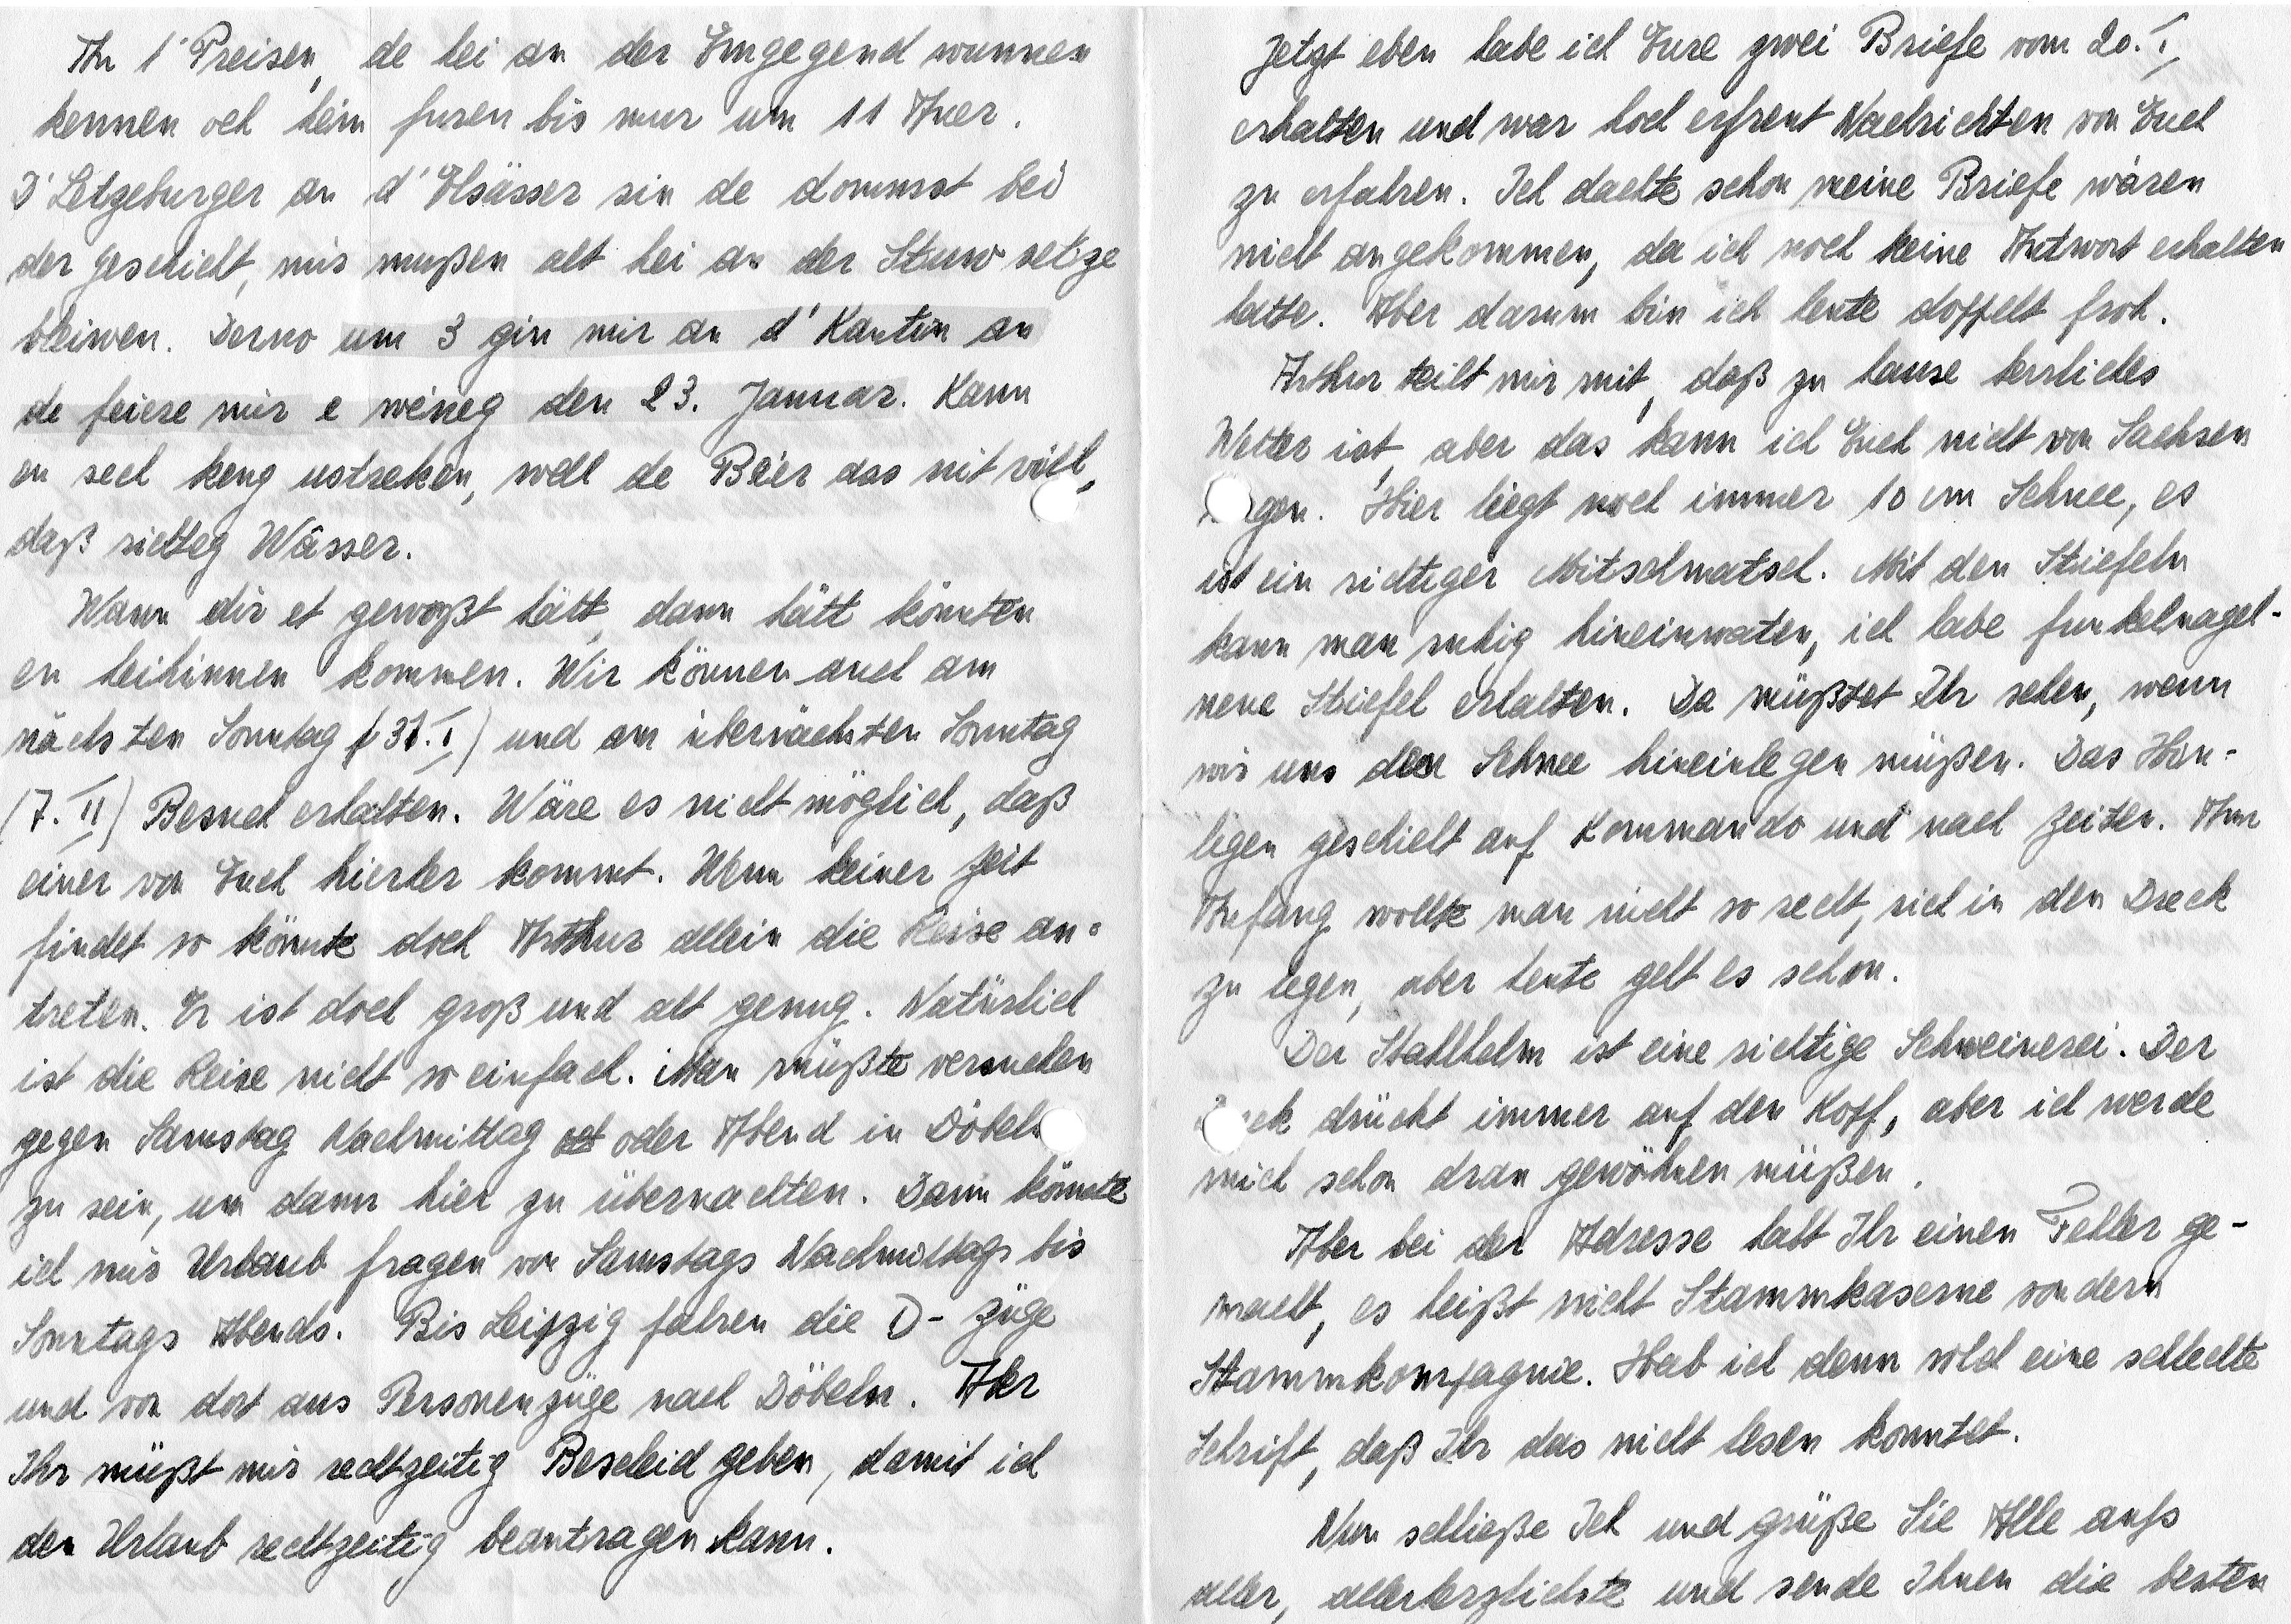 An d'Preisen, de hei an der Emgegend wunnen
kennen och heim furen bis muer um 11 Auer.
D'Letzeburger an d'Elsässer sin de dommst bei
der geschicht, mir mußen alt hei an der Stuw setze
bleiwen. Derno um 3 gin mir an d'Kantin an
de feiere mir e weineg den 23. Januar. Kann
en sech keng ustreken, well de Béier das nit vill,
daß richteg Wässer.
Wann dir et gewoßt hätt, dann hätt könnten
en heihinnen kommen. Wir können auch am
nächsten Sonntag (31.I) und am übernächsten Sonntag
(7.II) Besuch erhalten. Wäre es nicht möglich, daß
einer von Euch hierher kommt. Wenn keiner Zeit
findet so könnte doch Arthur allein die Reise an-
treten. Er ist doch groß und alt genug. Natürlich
ist die Reise nicht so einfach. Man müßte versuchen
gegen Samstag Nachmittag oder Abend in Döbeln
zu sein, um dann hier zu übernachten. Dann könnte
ich mir Urlaub fragen von Samstags Nachmittags bis
Sonntags Abends. Bis Leipzig fahren die D-Züge
und von dort aus Personenzüge nach Döbeln. Aber
Ihr müßt mir rechtzeitig Bescheid geben, damit ich
den Urlaub rechtzeitig beantragen kann.
Jetzt eben habe ich Eure zwei Briefe vom 20.I
erhalten und war hoch erfreut Nachrichten von Euch
zu erfahren. Ich dachte schon meine Briefe wären
nicht angekommen, da ich noch keine Antwort erhalten
hatte. Aber darum bin ich heute doppelt froh.
Arthur teilt mir mit, daß zu hause herrliches
Wetter ist, aber das kann ich Euch nicht von Sachsen
sagen. Hier liegt noch immer 10 cm Schnee, es
ist ein richtiger Mitschmatsch. Mit den Stiefeln
kann man ruhig hineinwaten, ich habe funkelnagel-
neue Stiefel erhalten. Da müßtet Ihr sehen, wenn
wir uns den Schnee hineinlegen müßen. Das Hin-
ligen geschieht auf Kommando und nach Zeiten. Am
Anfang wollte man nicht so recht, sich in den Dreck
zu legen, aber heute geht es schon.
Der Stahlhelm ist eine richtige Schweinerei. Der
drückt immer auf den Kopf, aber ich werde
mich schon dran gewöhnen müßen.
Aber bei der Adresse habt Ihr einen Fehler ge-
macht, es heißt nicht Stammkaserne sondern
Stammkompagnie. Hab ich denn solch eine schlechte
Schrift, daß Ihr das nicht lesen konntet.
Nun schließe Ich und grüße Sie Alle aufs
aller, allerherzlichste und sende Ihnen die besten